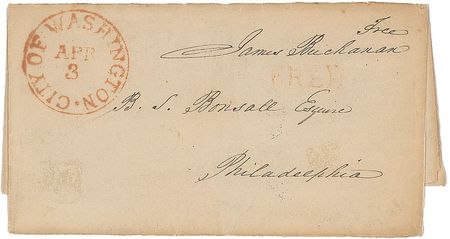 CITY OF WASHINGTON
APR
3
Free
James Buchanan
FREE
B. S. Bonsall Esquire
Philadelphia